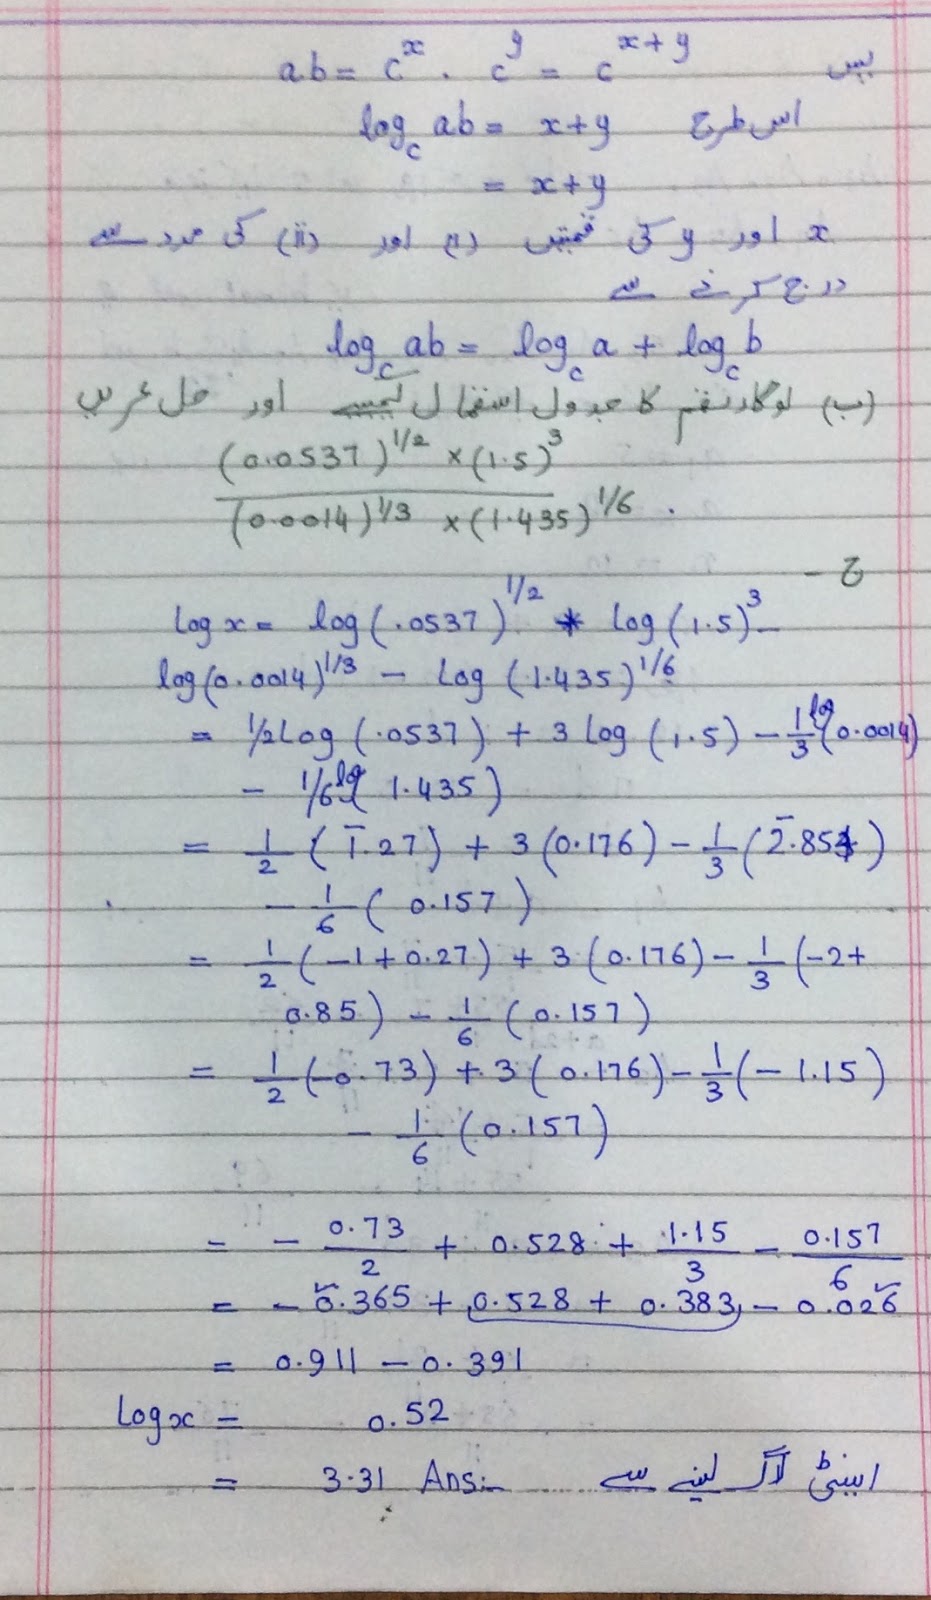 پس ab = c^x . c^y = c^(x+y)
اس طرح log_c ab = x+y
= x+y
x اور y کی قیمتیں (i) اور (ii) کی مدد سے
درج کرنے سے
log_c ab = log_c a + log_c b
(ب) لوگارتھم کا جدول استعمال کیجیے اور حل کریں
(0.0537)^1/2 × (1.5)^3
(0.0014)^1/3 × (1.435)^1/6 .
ج -
log x = log(.0537)^1/2 * log(1.5)^3 -
log(0.0014)^1/3 - log(1.435)^1/6
= 1/2 log(.0537) + 3 log(1.5) - 1/3 log(0.0014)
- 1/6 log(1.435)
= 1/2 (1̄.27) + 3(0.176) - 1/3 (2̄.854)
- 1/6 (0.157)
= 1/2 (-1+0.27) + 3(0.176) - 1/3 (-2+
0.85) - 1/6 (0.157)
= 1/2 (-0.73) + 3(0.176) - 1/3 (-1.15)
- 1/6 (0.157)
= - 0.73/2 + 0.528 + 1.15/3 - 0.157/6
= - 0.365 + 0.528 + 0.383 - 0.026
= 0.911 - 0.391
log x = 0.52
= 3.31 Ans:- اینٹی لاگ لینے سے